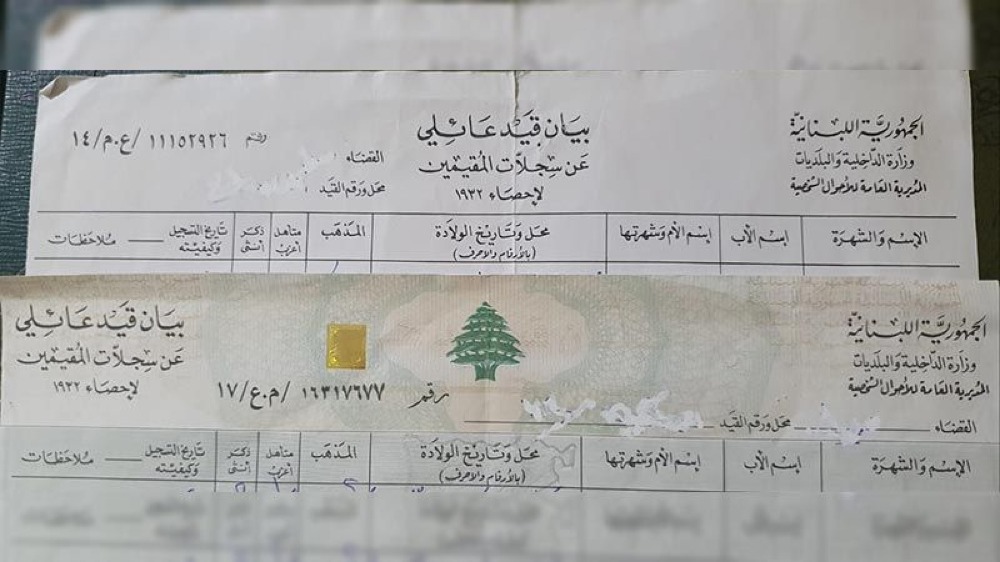 الجمهوريّة اللبنانيّة
وزارة الداخلية والبلديات
المديرية العامة للأحوال الشخصية
بيان قيد عائلي
عن سجلات المقيمين
لإحصاء ١٩٣٢
رقم ١١١٥٢٩٢٦ /ع.م/١٤
القضاء
محل ورقم القيد
الإسم والشهرة إسم الأب إسم الأم وشهرتها محل وتاريخ الولادة (بالأرقام والأحرف) المذهب متاهل أعزب ذكر أنثى تاريخ التسجيل وكيفيته ملاحظات
الجمهوريّة اللبنانيّة
وزارة الداخلية والبلديات
المديرية العامة للأحوال الشخصية
بيان قيد عائلي
عن سجلات المقيمين
لإحصاء ١٩٣٢
رقم ١٦٣١٧٦٧٧ /م.ع/١٧
القضاء محل ورقم القيد
الإسم والشهرة إسم الأب إسم الأم وشهرتها محل وتاريخ الولادة (بالأرقام والأحرف) المذهب متاهل أعزب ذكر أنثى تاريخ التسجيل وكيفيته ملاحظات